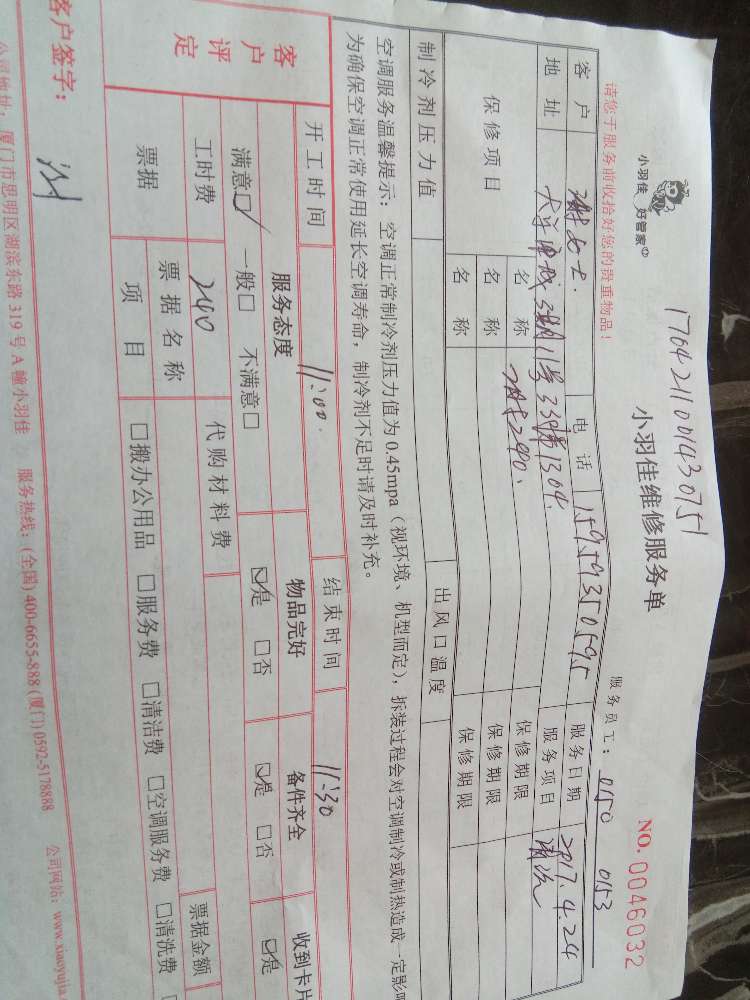 1704211001430751
小羽佳 好管家
小羽佳维修服务单
NO. 0046032
请您于服务前收拾好您的贵重物品！
服务员工： 0150 0153
客户 谢女士. 电话 15959350595 服务日期 2017.4.24
地址 3期11号 1304. 服务项目 清洗
保修项目 名称 保修期限
名称 保修期限
名称 保修期限
制冷剂压力值 出风口温度
空调服务温馨提示： 空调正常制冷剂压力值为0.45mpa（视环境、机型而定），拆装过程会对空调制冷或制热造成一定影
为确保空调正常使用延长空调寿命，制冷剂不足时请及时补充。
开工时间 11:00. 结束时间 11:30
客户评定 服务态度 物品完好 备件齐全 收到卡片
满意☑ 一般□ 不满意□ ☑是 □否 ☑是 □否 ☑是
工时费 240 代购材料费 票据金额
票据 票据名称 □搬办公用品 □服务费 □清洁费 □空调服务费 □清洗费
项目
客户签字：
公司地址：厦门市思明区湖滨东路319号A幢小羽佳 服务热线：(全国) 400-6655-888 (厦门) 0592-5178888 公司网站：www.xiaoyujia.